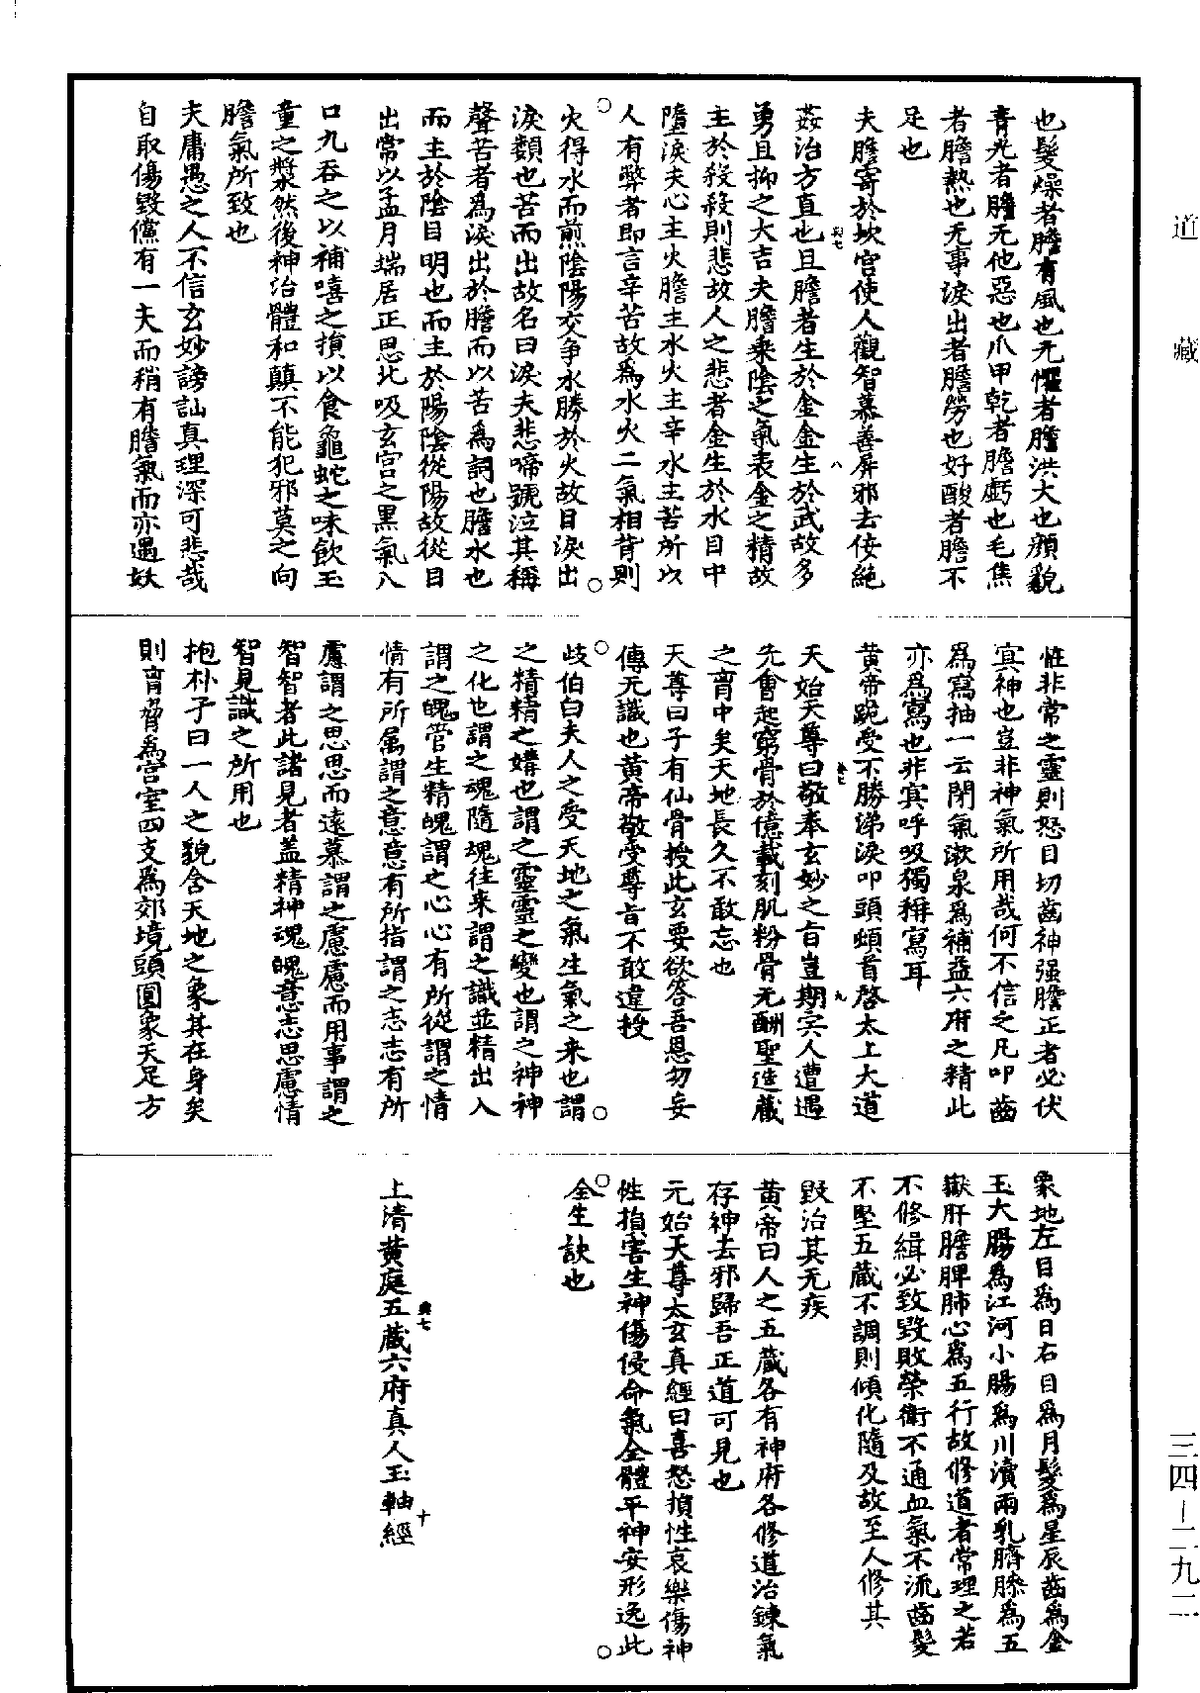 道藏
三四—二九二
也髮燥者膽有風也无懼者膽洪大也顏貌
青光者膽无他惡也爪甲乾者膽虧也毛焦
者膽熱也无事淚出者膽勞也好酸者膽不
足也
夫膽寄於坎宮使人觀智慕善屏邪去佞絕
姦治方直也且膽者生於金金生於武故多
八
勇且抑之大吉夫膽乘陰之氣表金之精故
主於殺殺則悲故人之悲者金生於水目中
墮淚夫心主火膽主水火主辛水主苦所以
人有弊者即言辛苦故為水火二氣相背則
火得水而煎陰陽交爭水勝於火故目淚出
淚類也苦而出故名曰淚夫悲啼號泣其稱
聲苦者為淚出於膽而以苦為詞也膽水也
而主於陰目明也而主於陽陰從陽故從目
出常以孟月端居正思北吸玄宮之黑氣入
口九吞之以補嘻之損以食龜蛇之味飲玉
童之漿然後神治體和顛不能犯邪莫之向
膽氣所致也
夫庸愚之人不信玄妙謗訕真理深可悲哉
自取傷毀儻有一夫而稍有膽氣而亦遇妖
恠非常之靈則怒目切齒神强膽正者必伏
寘神也豈非神氣所用哉何不信之凡叩齒
為寫抽一云閉氣漱泉為補益六府之精此
亦為寫也非寘呼吸獨稱寫耳
黃帝跪受不勝涕淚叩頭頓首啓太上大道
天始天尊曰敬奉玄妙之旨豈期宾人遭遇
九
先會起窮骨於億載刻肌粉骨无酬聖造藏
之肓中矣天地長久不敢忘也
天尊曰子有仙骨授此玄要欲答吾恩勿妄
傳无識也黃帝敬受尊旨不敢違授
歧伯曰夫人之受天地之氣生氣之来也謂
之精精之媾也謂之靈靈之變也謂之神神
之化也謂之魂隨魂往来謂之識並精出入
謂之魄管生精魄謂之心心有所從謂之情
情有所属謂之意意有所指謂之志志有所
慮謂之思思而遠慕謂之慮慮而用事謂之
智智者此諸見者盖精神魂魄意志思慮情
智見識之所用也
抱朴子曰一人之貌含天地之象其在身矣
則肓脅為宫室四支為郊境頭圓象天足方
象地左目為日右目為月髮為星辰齒為金
玉大腸為江河小腸為川瀆兩乳臍膝為五
嶽肝膽脾肺心為五行故修道者常理之若
不修緝必致毀敗榮衛不通血氣不流齒髮
不堅五藏不調則傾化隨及故至人修其
毀治其无疾
黃帝曰人之五藏各有神府各修道治鍊氣
存神去邪歸吾正道可見也
元始天尊太玄真經曰喜怒損性哀樂傷神
性損害生神傷侵命氣全體平神安形逸此
全生訣也
上清黃庭五藏六府真人玉軸經
十